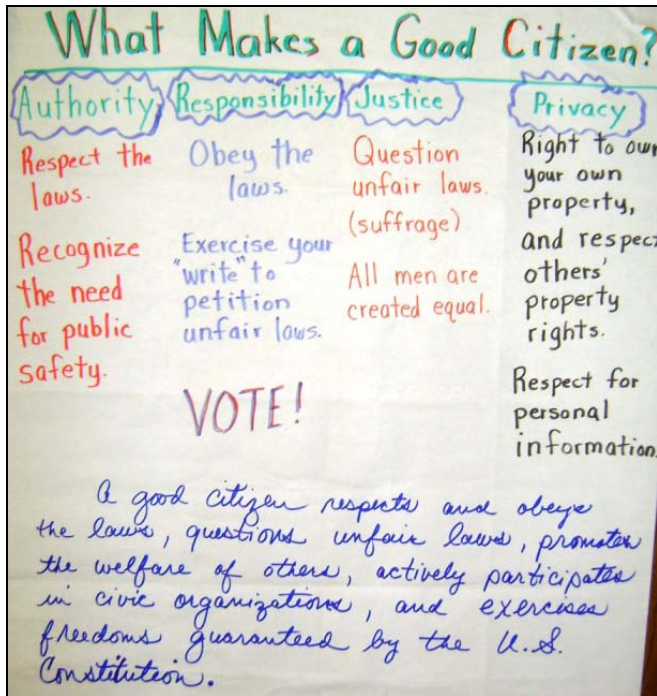 What Makes a Good Citizen?
Authority
Respect the
laws.
Recognize
the need
for public
safety.
Responsibility
Obey the
laws.
Exercise your
"write" to
petition
unfair laws.
VOTE!
Justice
Question
unfair laws.
(suffrage)
All men are
created equal.
Privacy
Right to own
your own
property,
and respect
others'
property
rights.
Respect for
personal
information.
A good citizen respects and obeys
the laws, questions unfair laws, promotes
the welfare of others, actively participates
in civic organizations, and exercises
freedoms guaranteed by the U.S.
Constitution.